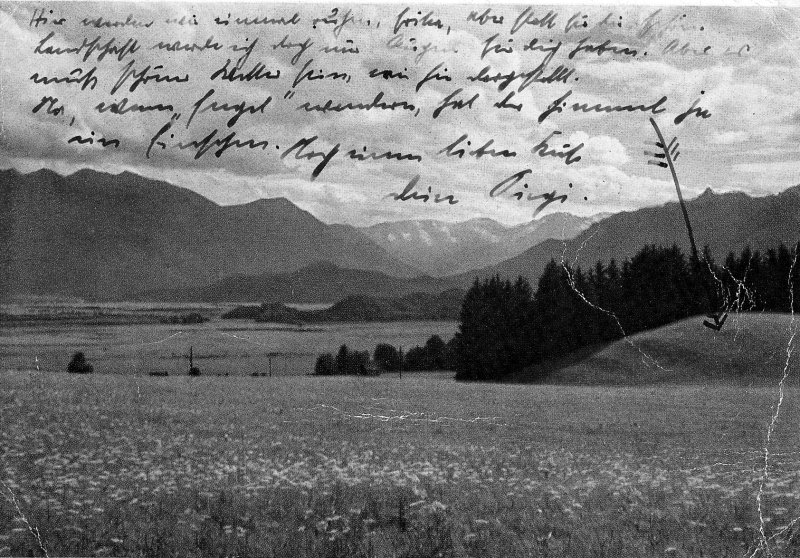 Hier werden wir einmal ruhen, später, aber statt für die schöne
Landschaft werde ich doch nur Augen für dich haben. Aber es
muß schönes Wetter sein, wie hier dargestellt.
Na, wenn "Engel" wandern, hat der Himmel ja
ein Einsehen. Noch einen lieben Kuß
dein